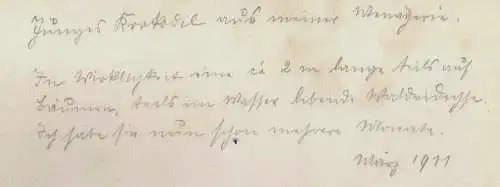 Junges Krokodil aus meiner Menagerie.
In Wirklichkeit eine ca 2 m lange teils auf
Bäumen, teils im Wasser lebende Waldeidechse.
Ich habe sie nun schon mehrere Monate.
März 1911